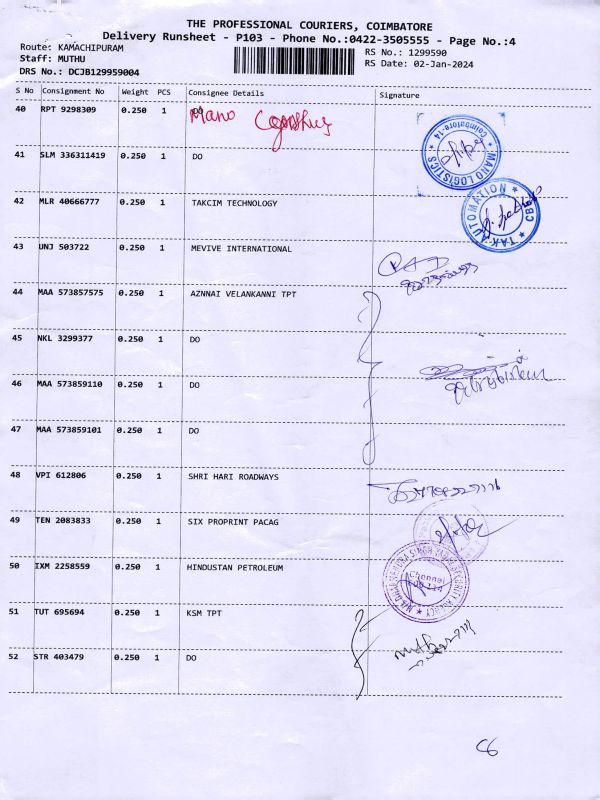 THE PROFESSIONAL COURIERS, COIMBATORE
Delivery Runsheet - P103 - Phone No.:0422-3505555 - Page No.:4
Route: KAMACHIPURAM
RS No.: 1299590
Staff: MUTHU
RS Date: 02-Jan-2024
DRS No.: DCJB129959004
S No Consignment No Weight PCS Consignee Details Signature
40 RPT 9298309 0.250 1 DO
Mano
41 SLM 336311419 0.250 1 DO
MANO LOGISTICS Coimbatore-14
42 MLR 40666777 0.250 1 TAKCIM TECHNOLOGY
TAK AUTOMATION CBE
43 UNJ 503722 0.250 1 MEVIVE INTERNATIONAL
44 MAA 573857575 0.250 1 AZNNAI VELANKANNI TPT
45 NKL 3299377 0.250 1 DO
46 MAA 573859110 0.250 1 DO
47 MAA 573859101 0.250 1 DO
48 VPI 612806 0.250 1 SHRI HARI ROADWAYS
49 TEN 2083833 0.250 1 SIX PROPRINT PACAG
50 IXM 2258559 0.250 1 HINDUSTAN PETROLEUM
Chennai
51 TUT 695694 0.250 1 KSM TPT
52 STR 403479 0.250 1 DO